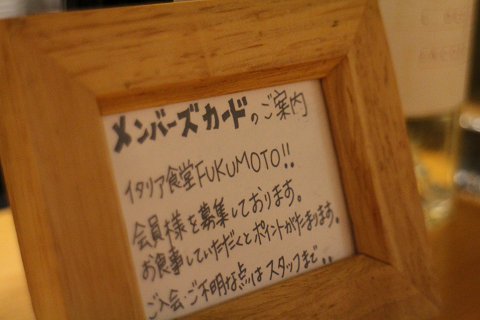 メンバーズカードのご案内
イタリア食堂FUKUMOTO!!
会員様を募集しております。
お食事していただくとポイントがたまります。
ご入会・ご不明な点はスタッフまで..